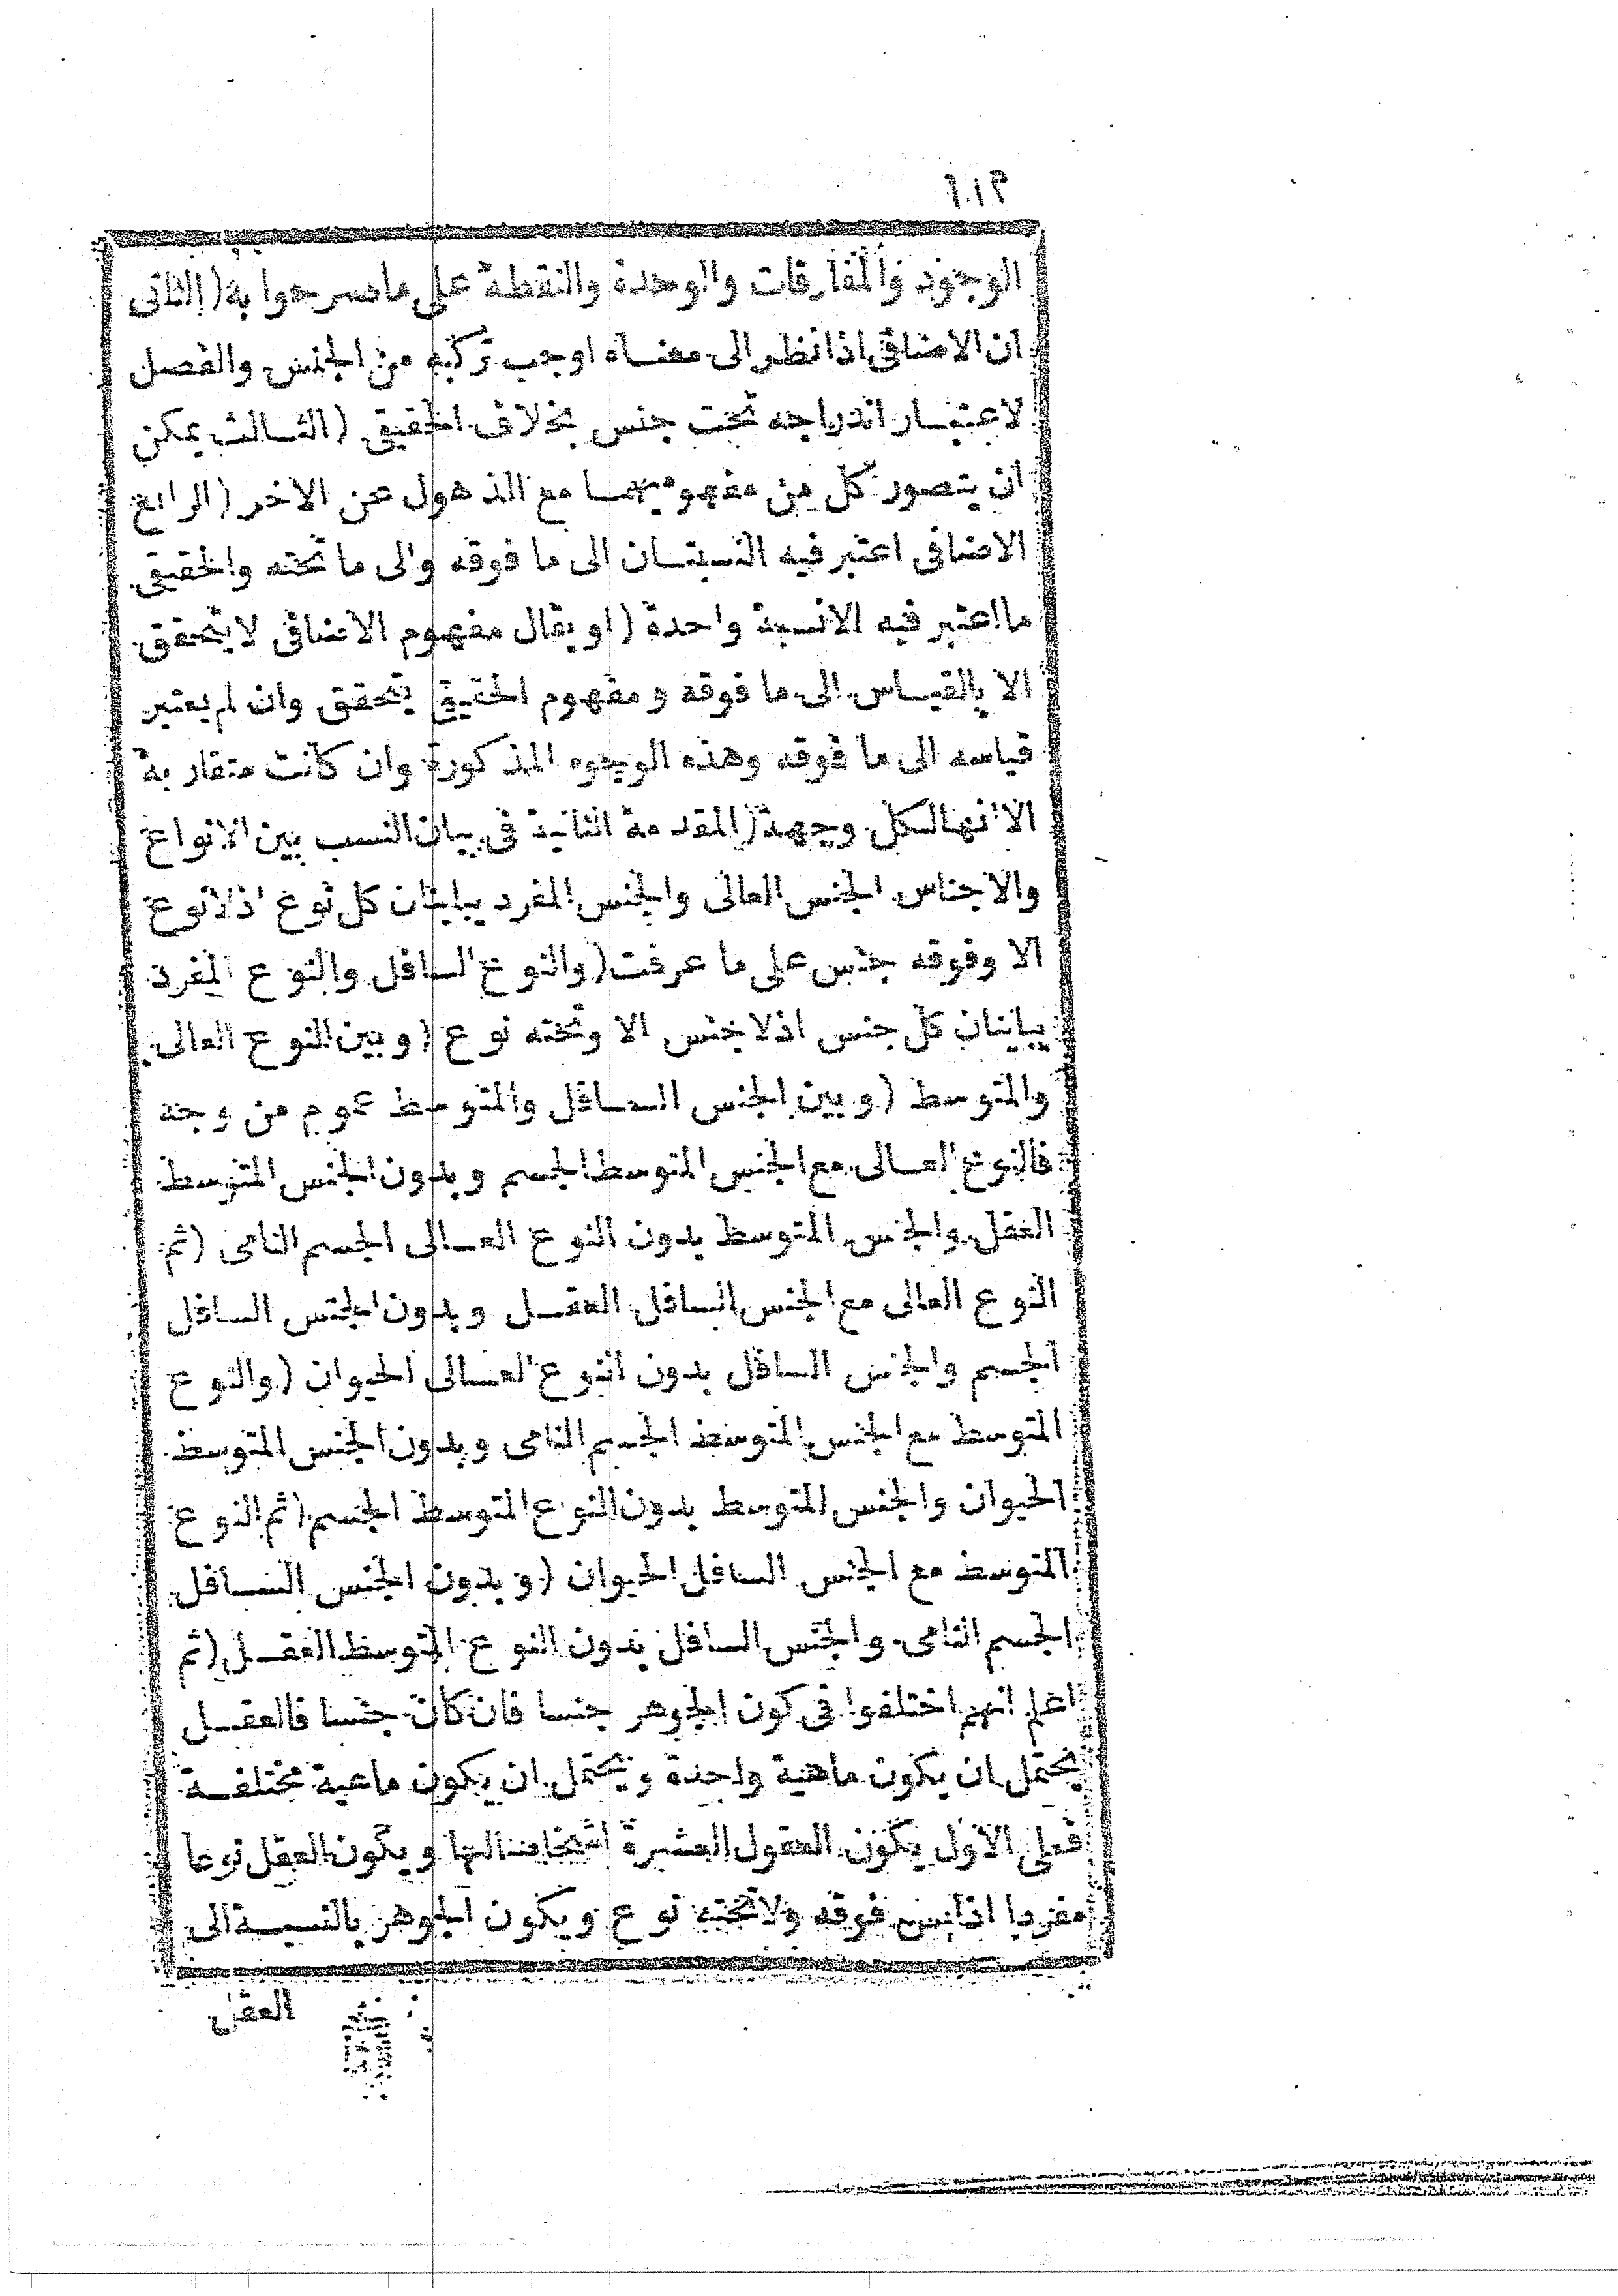 الوجود والمفارقات والوحدة والنقطة على ما صرحوا به (الثانى
ان الاضافى اذا نظر الى معناه اوجب تركبه من الجنس والفصل
لاعتبار اندراجه تحت جنس بخلاف الحقيقى (الثالث يمكن
ان يتصور كل من مفهوميهما مع الذهول عن الاخر (الرابع
الاضافى اعتبر فيه النسبتان الى ما فوقه والى ما تحته والحقيقى
ما اعتبر فيه الا نسبة واحدة (او يقال مفهوم الاضافى لا يتحقق
الا بالقياس الى ما فوقه ومفهوم الحقيقى يتحقق وان لم يعتبر
قياسه الى ما فوقه وهذه الوجوه المذكورة وان كانت متقاربة
الا انها لكل وجهة (المقدمة الثانية فى بيان النسب بين الانواع
والاجناس الجنس العالى والجنس المفرد يباينان كل نوع اذ لا نوع
الا وفوقه جنس على ما عرفت (والنوع السافل والنوع المفرد
يباينان كل جنس اذ لا جنس الا وتحته نوع (وبين النوع العالى
والمتوسط (وبين الجنس السافل والمتوسط عموم من وجه
فالنوع العالى مع الجنس المتوسط الجسم وبدون الجنس المتوسط
العقل والجنس المتوسط بدون النوع العالى الجسم النامى (ثم
النوع العالى مع الجنس السافل العقل وبدون الجنس السافل
الجسم والجنس السافل بدون النوع العالى الحيوان (والنوع
المتوسط مع الجنس المتوسط الجسم النامى وبدون الجنس المتوسط
الحيوان والجنس المتوسط بدون النوع المتوسط الجسم (ثم النوع
المتوسط مع الجنس السافل الحيوان (وبدون الجنس السافل
الجسم النامى والجنس السافل بدون النوع المتوسط العقل (ثم
اعلم انهم اختلفوا فى كون الجوهر جنسا فان كان جنسا فالعقل
يحتمل ان يكون ماهية واحدة ويحتمل ان يكون ماهية مختلفة
فعلى الاول يكون العقول العشرة اشخاصا لها ويكون العقل نوعا
مفردا اذ ليس فوقه ولا تحته نوع ويكون الجوهر بالنسبة الى
العقل